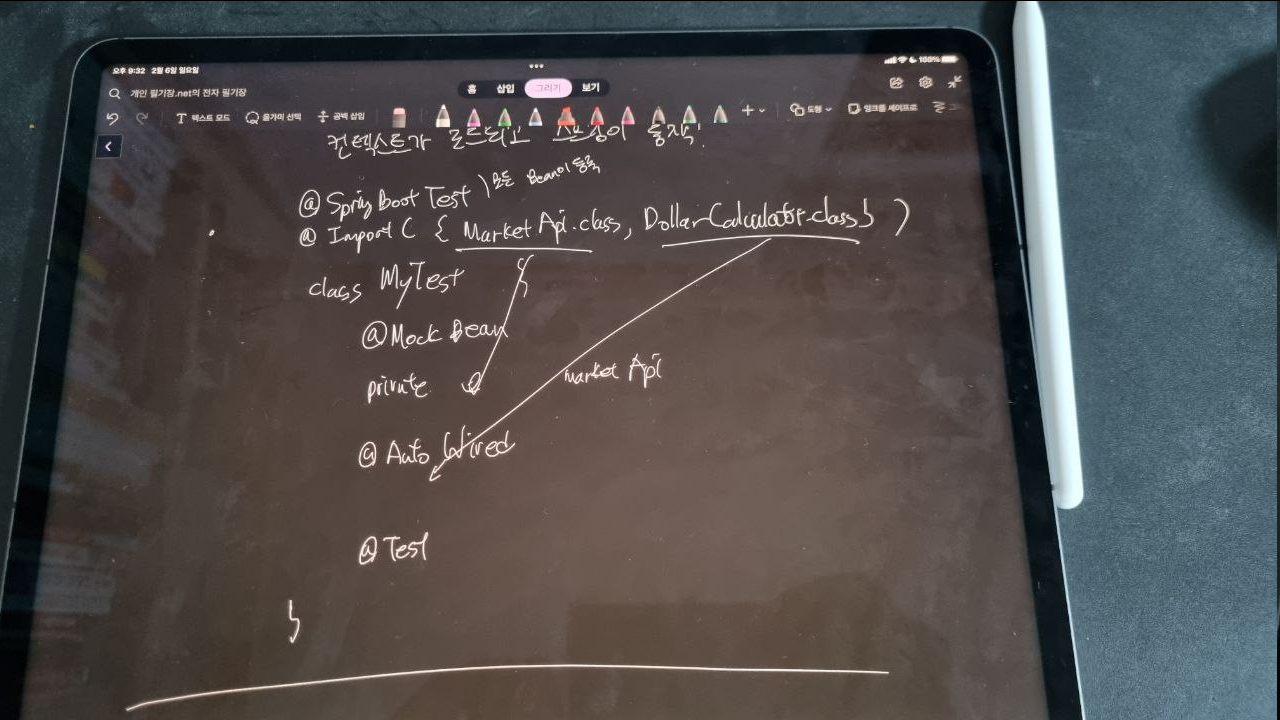 오후 9:32 2월 6일 일요일
100%
개인 필기장.net의 전자 필기장
홈 삽입 그리기 보기
텍스트 모드 올가미 선택 공백 삽입 도형 잉크를 셰이프로
컨텍스트가 로드되고 스프링이 동작!
@ Spring Boot Test ) 모든 Bean이 등록
@ Import ( { Market Api.class, Dollar Calculator.class } )
class MyTest {
@ Mock Bean
private market Api
@ Auto Wired
@ Test
}